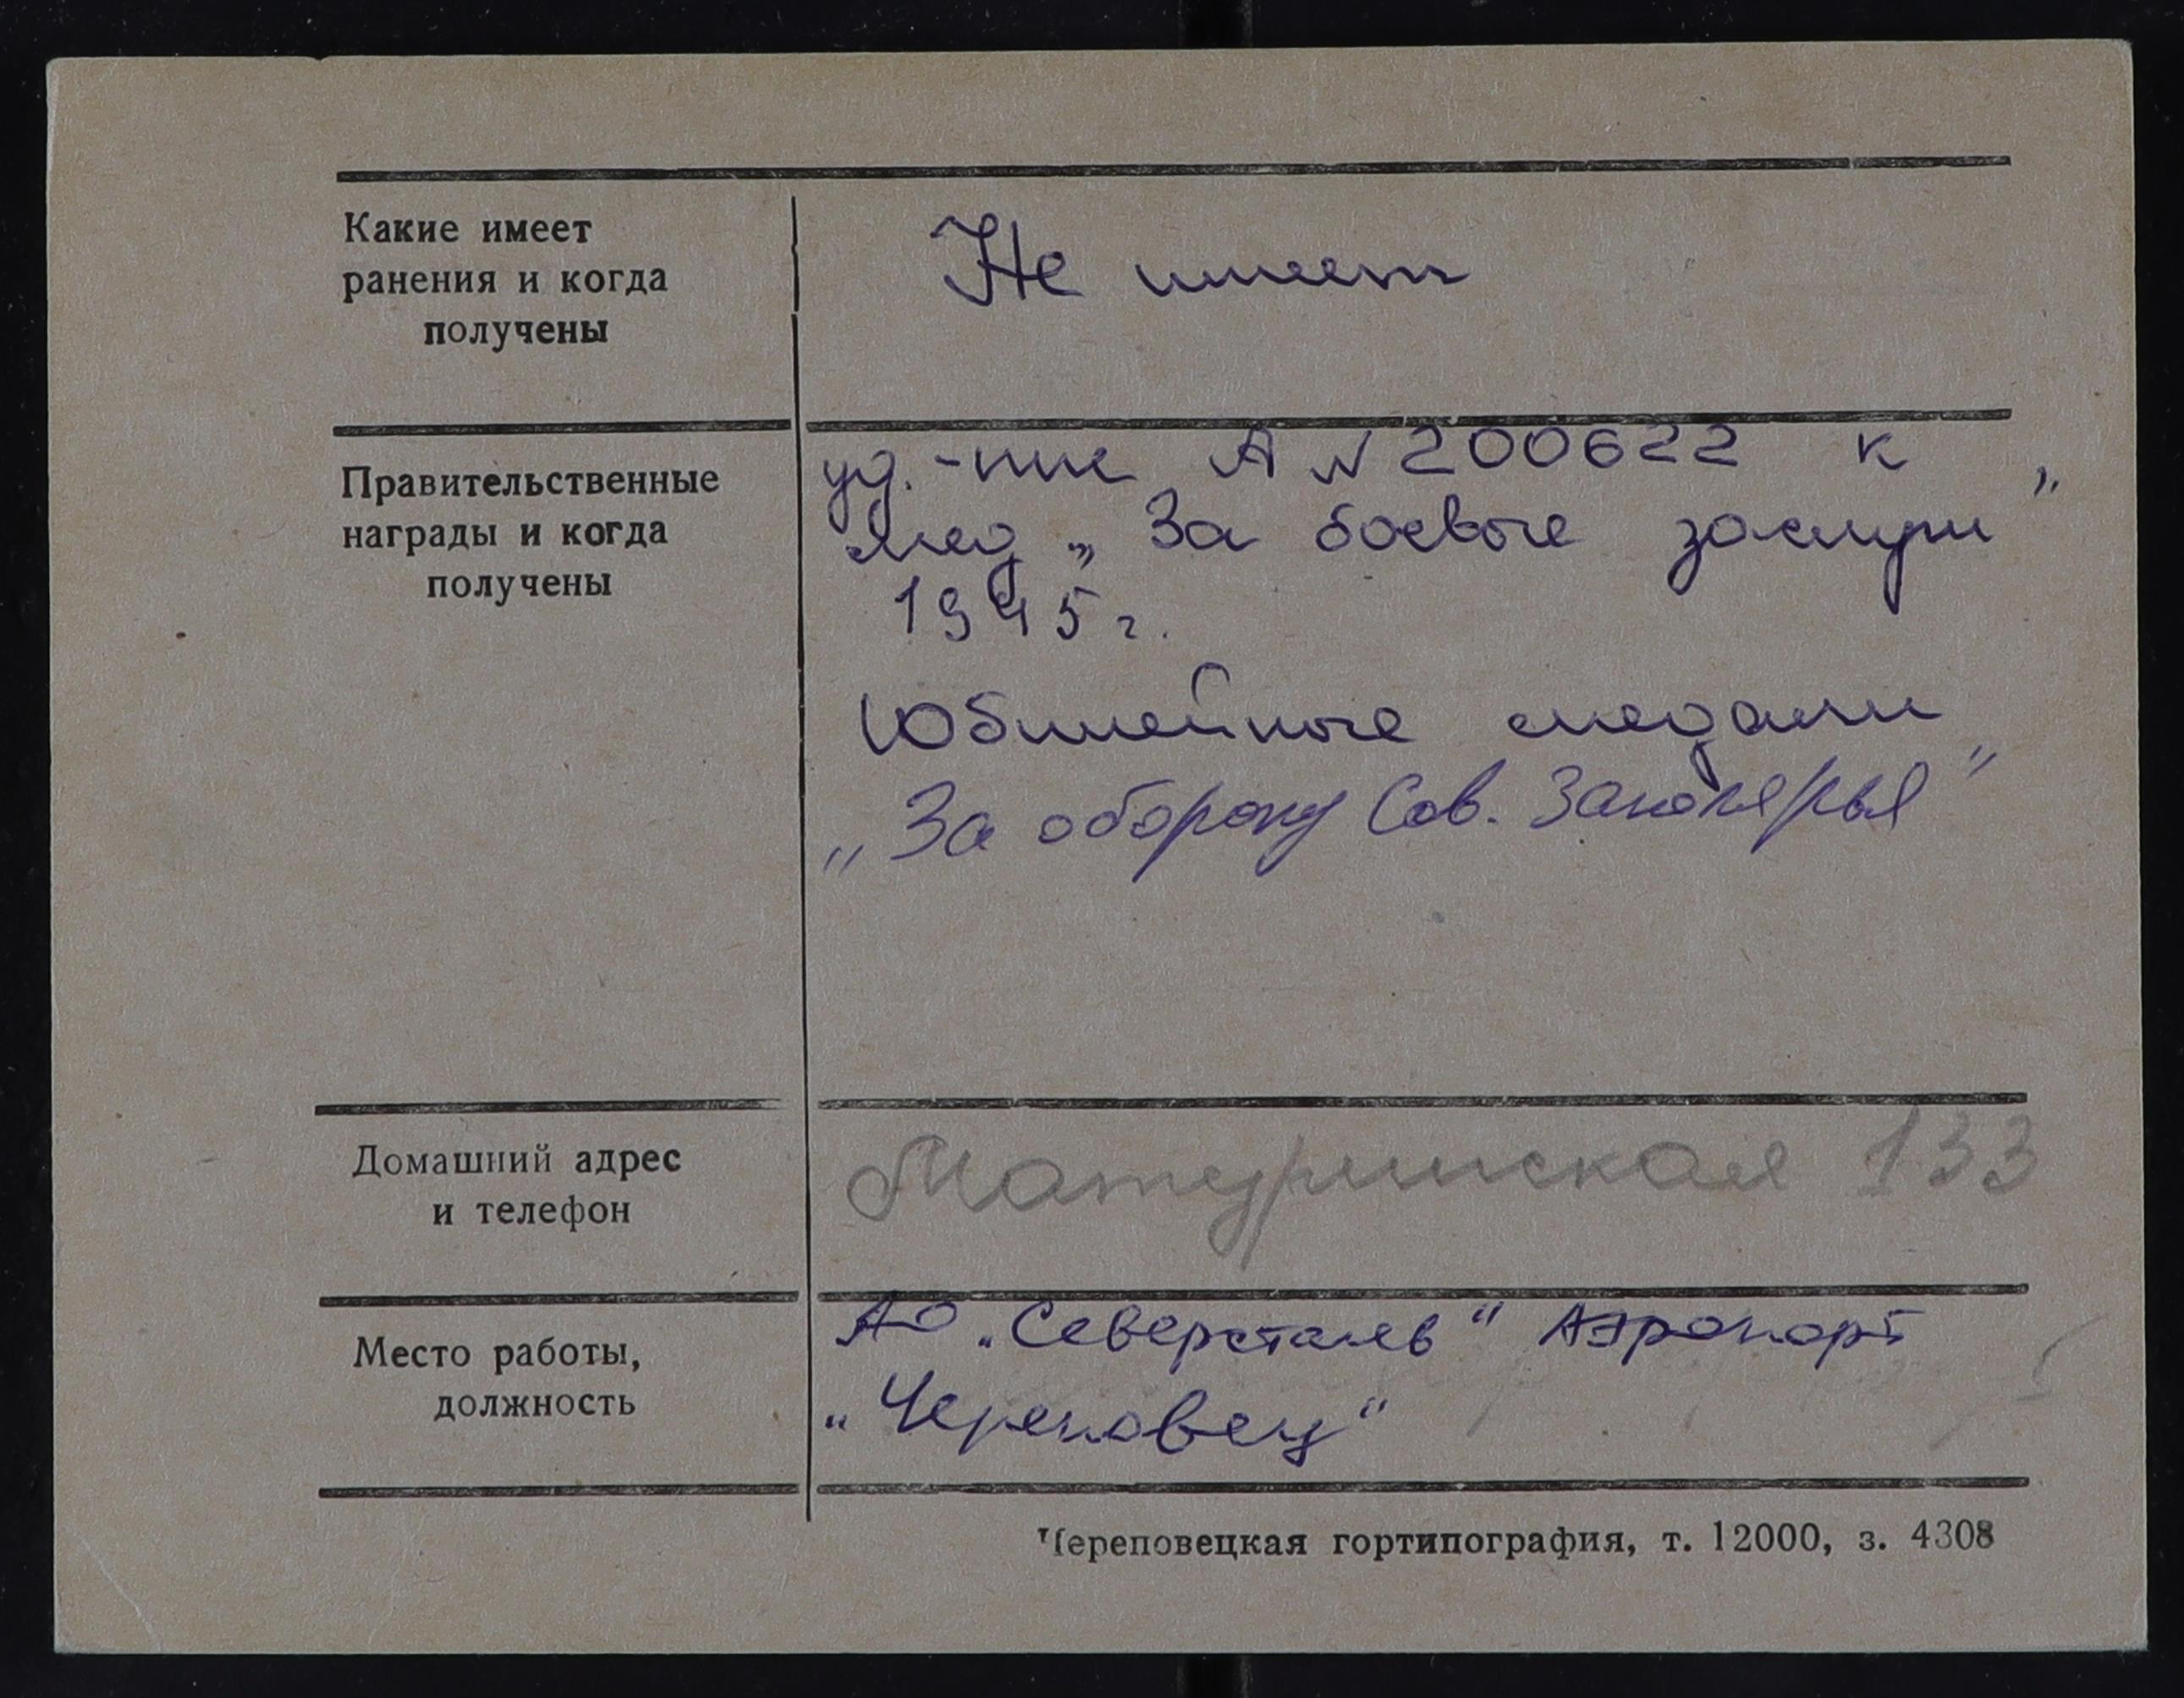 Какие имеет
ранения и когда
получены
Не имеет
Правительственные
награды и когда
получены
уд.-ние А № 200622 к
мед „За боевые заслуги"
1945 г.
Юбилейные медали
„За оборону Сов. Заполярья"
Домашний адрес
и телефон
Матуринская 133
Место работы,
должность
АО „Северсталь" Аэропорт
„Череповец"
Череповецкая гортипография, т. 12000, з. 4308